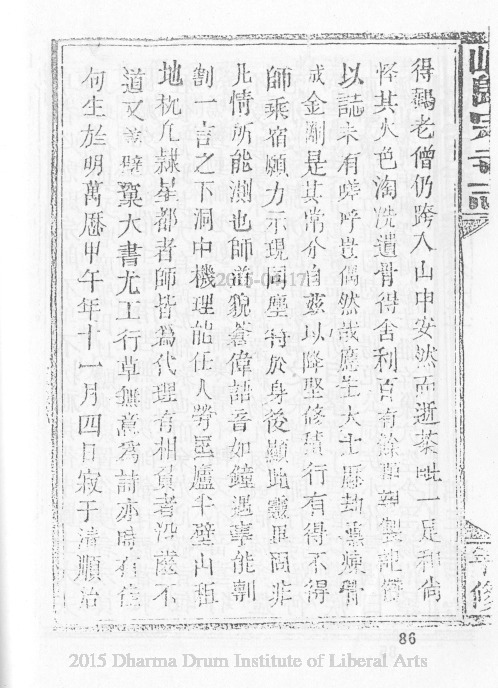 得鷊老僧仍跨入山中安然而逝茶毗一足和尚
怪其火色淘洗遺骨得舍利百有餘
以誌未有嗟呼豈偶然哉應生大士歷劫熏煉骨
成金剛是其常分自茲以降堅修積行有得不得
師乘宿願力示現同塵特於身後顯此靈異固非
凡情所能測也師道貌蒼偉語音如鐘遇事能剸
割一言之下洞中機理能任人勞匡廬半壁山
地枕凡隸星都者師皆為代理有相負者泯齒不
道又善擘窠大書尤工行草無意為詩亦時有佳
句生於明萬曆甲午年十一月四日寂于清順治
年 修
2015-04-17
86
2015 Dharma Drum Institute of Liberal Arts